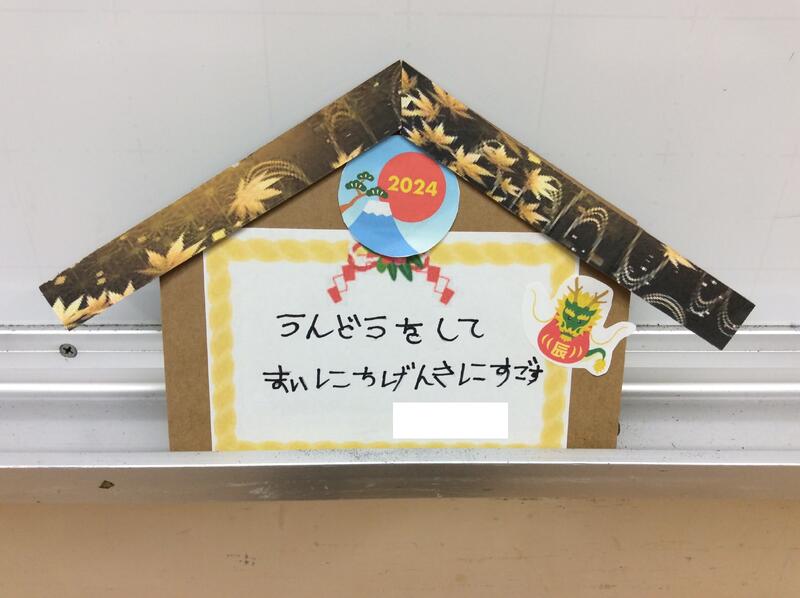 2024
うんどうをして
まいにちげんきにすごす
辰